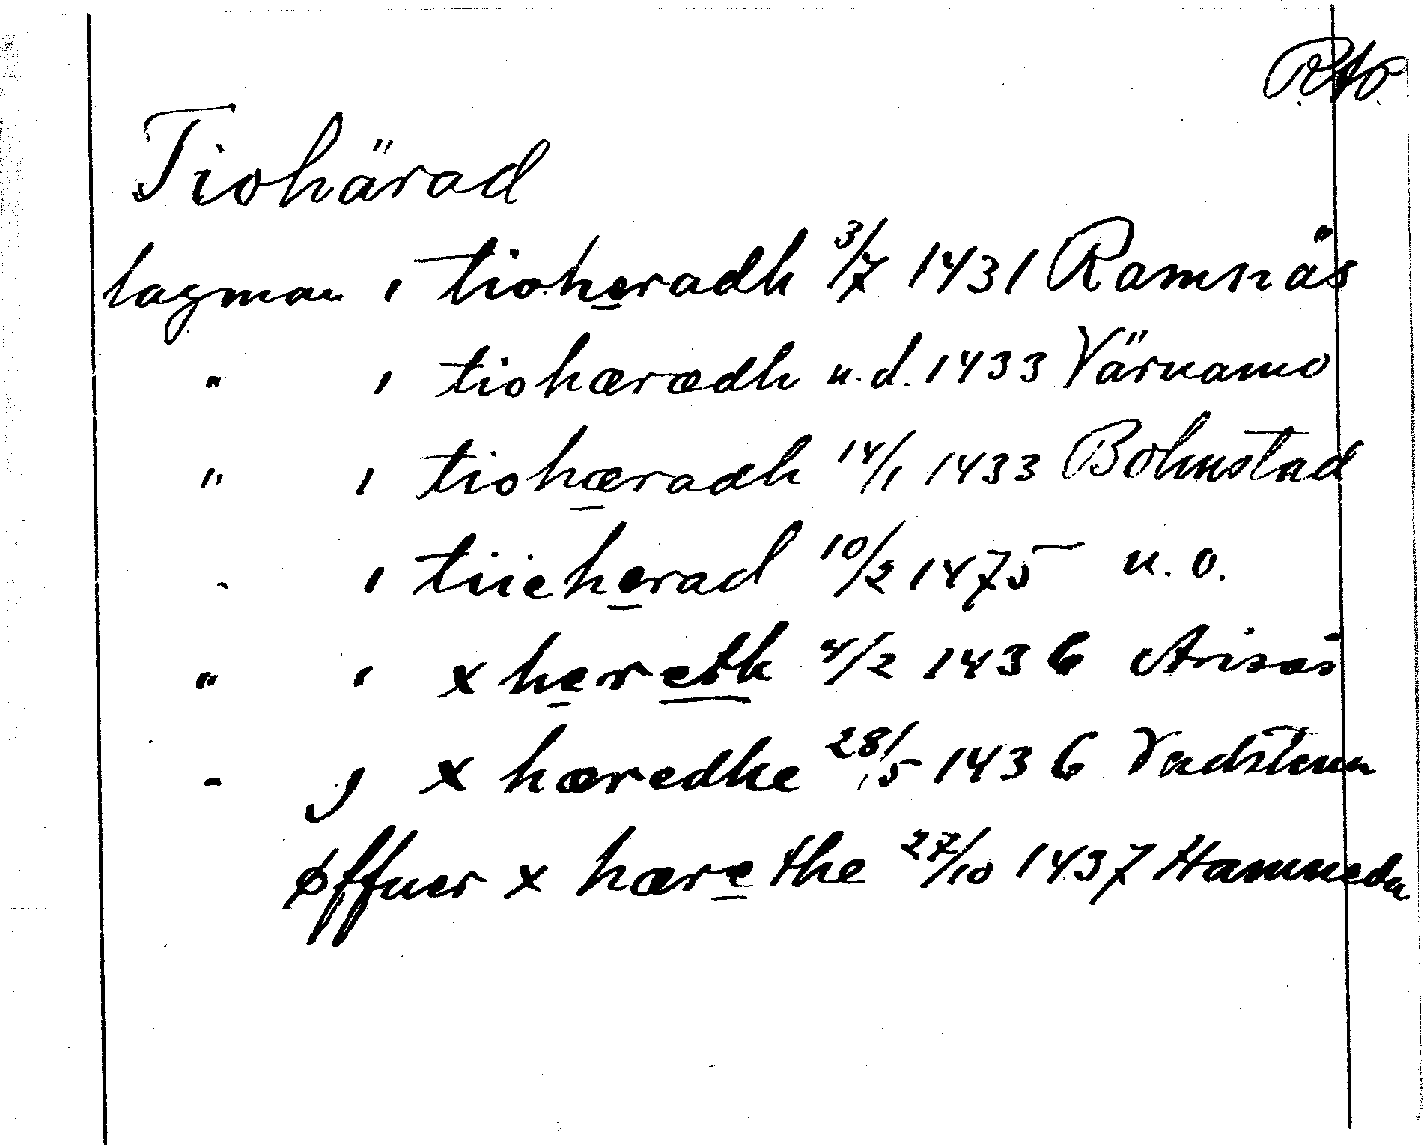 RAp.
Tiohärad
lagman i tioheradh 3/7 1431 Ramnäs
" i tiohæradh u.d. 1433 Värnamo
" i tiohæradh 14/1 1433 Bolmstad
" i tiieherad 10/2 1475 u.o.
" i x hereth 4/2 1436 Arisäs
" j x hæredhe 28/5 1436 Vadstena
øffuer x hærethe 27/10 1437 Hamneda